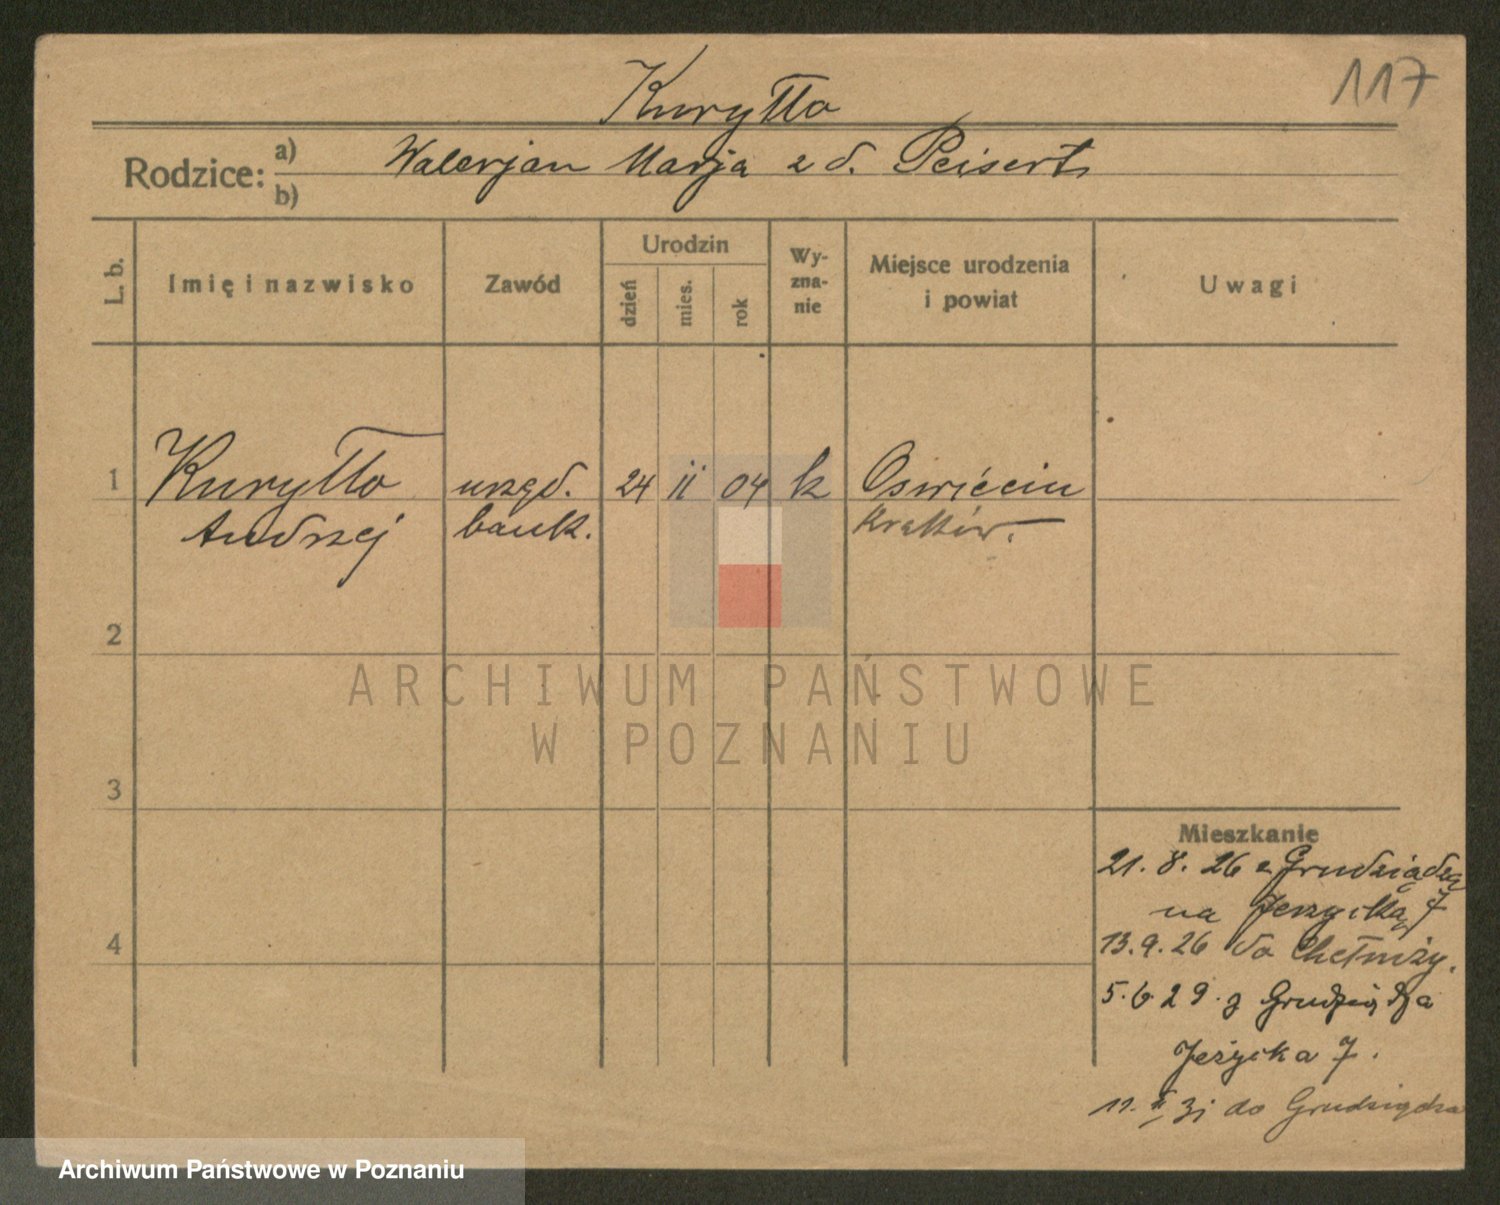 117
Kuryłło
Rodzice: a) Walerjan Marja z d. Peisert
b)
L. b.
Imię i nazwisko
Zawód
Urodzin
dzień
mies.
rok
Wy-
zna-
nie
Miejsce urodzenia
i powiat
Uwagi
1 Kuryłło urzęd. 24 ii 04 k Oświęcim
Andrzej bank. Kraków.
2
3
4
Mieszkanie
21. 8. 26 z Grudziądza
na Jeżycką 7
13. 9. 26 do Chełmży.
5. 6. 29. z Grudziądza
Jeżycka 7.
11. II 31 do Grudziądza
ARCHIWUM PAŃSTWOWE
W POZNANIU
Archiwum Państwowe w Poznaniu